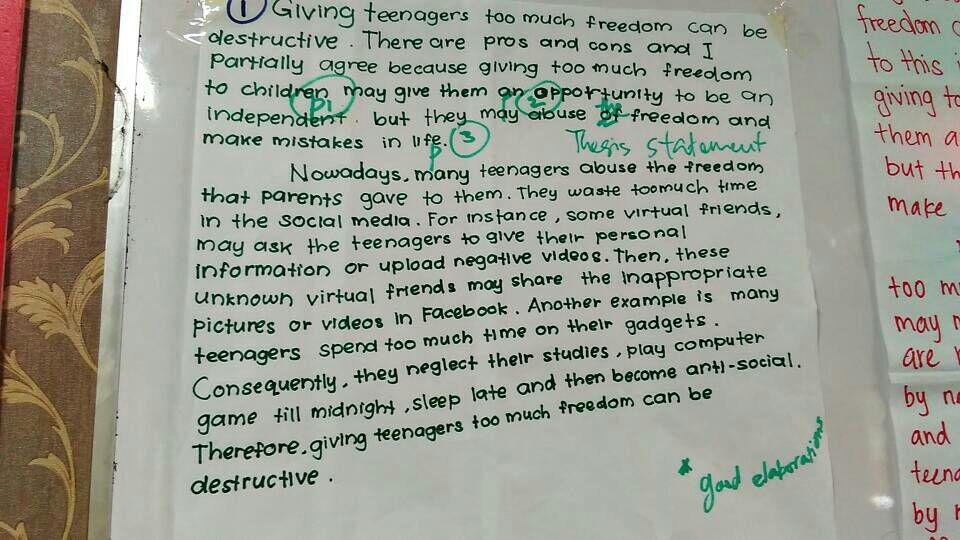 1 Giving teenagers too much freedom can be
destructive. There are pros and cons and I
partially agree because giving too much freedom
to children may give them an opportunity to be an
P1
2
independent. but they may abuse of freedom and
the
make mistakes in life.
3
Thesis statement
Nowadays, many teenagers abuse the freedom
that parents gave to them. They waste toomuch time
in the social media. For instance, some virtual friends,
may ask the teenagers to give their personal
information or upload negative videos. Then, these
unknown virtual friends may share the inappropriate
pictures or videos in Facebook. Another example is many
teenagers spend too much time on their gadgets.
Consequently, they neglect their studies, play computer
game till midnight, sleep late and then become anti-social.
Therefore, giving teenagers too much freedom can be
destructive.
* good elaborations
freedom
to this
giving to
them a
but th
make
too m
may
are
by
and
teena
by